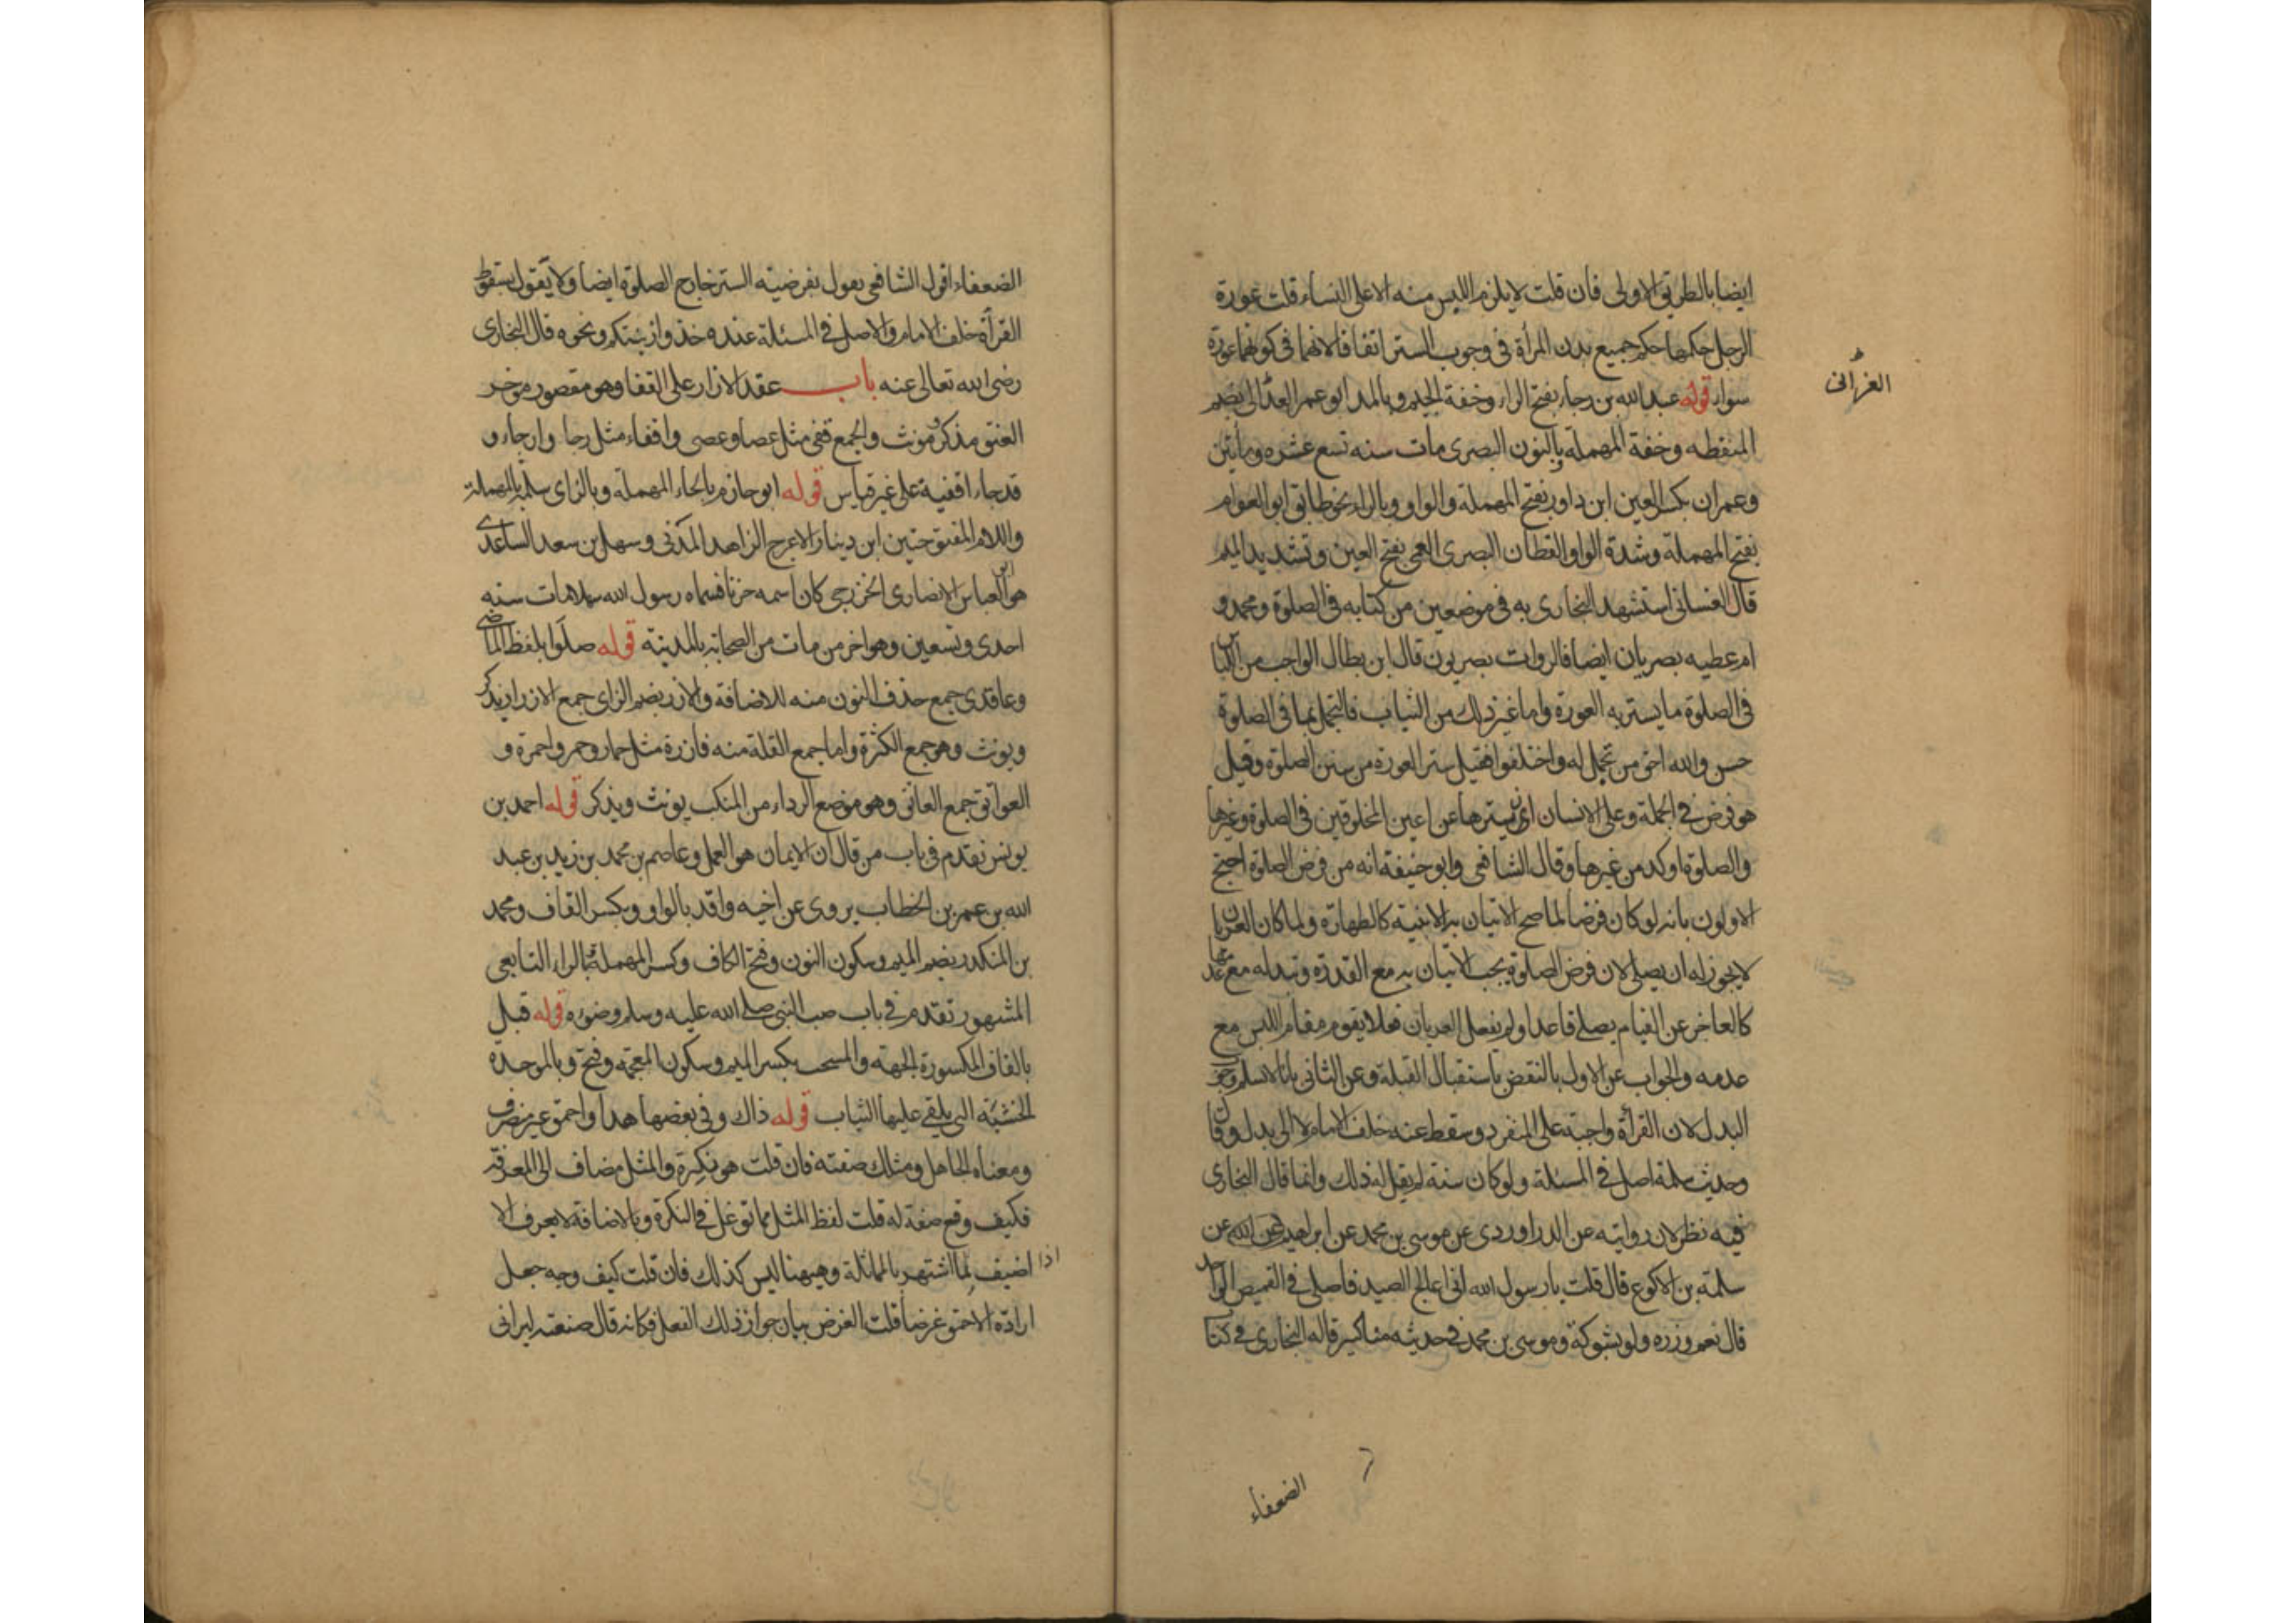 ايضا بالطريق الاولى فان قلت لا يلزم اللبس منه الا على النساء قلت عورة
الرجل حكمها حكم جميع بدن المرأة فى وجوب الستر اتفاقا لانهما فى كونهما عورة
سواء قوله عبد الله بن رجاء بفتح الراء وخفة الجيم وبالمد ابو عمر العدانى بضم
الغزانى
المنقطه وخفة المهملة بالنون البصرى مات سنه تسع عشره ومأتين
وعمران بكسر العين ابن داور بفتح المهملة والواو وبالراء ابو العوام
بفتح المهملة وشدة الواو القطان البصرى العمى بفتح العين وتشديد الميم
قال الغسانى استشهد البخارى به فى موضعين من كتابه فى الصلوة ومحمد و
ام عطيه بصريان ايضا فالروات بصريون قال ابن بطال الواجب من اللباس
فى الصلوة ما يستر به العورة واما غير ذلك من الثياب فالتجمل بها فى الصلوة
حسن والله احق من تجمل له واختلفوا فقيل ستر العورة من سنن الصلوة وقيل
هو فرض فى الجملة وعلى الانسان ان يسترها عن اعين المخلوقين فى الصلوة وغيرها
والصلوة اوكد من غيرها وقال الشافعى وابو حنيفة انه من فرض الصلوة احتج
الاولون بانه لو كان فرضا لما صح الاتيان به الا بنية كالطهارة ولما كان العريان
لا يجوز له ان يصلى لان فرض الصلوة يجب الاتيان به مع القدرة وتبدله مع عدمها
كالعاجز عن القيام يصلى قاعدا ولم يفعل العريان فعلا يقوم مقام اللبس مع
عدمه والجواب عن الاول بالنقض باستقبال القبلة وعن الثانى بانا لا نسلم وجوب
البدل لان القرأة واجبة على المنفرد وسقط عنه خلف الامام لا الى بدل وقال
وحديث سلمة اصل فى المسئلة ولو كان سنة لم يقل له ذلك وانما قال البخارى
فيه نظر لان روايته عن الدراوردى عن موسى بن محمد عن ابراهيم عن ابيه عن
سلمة بن الاكوع قال قلت يا رسول الله انى اعالج الصيد فاصلى فى القميص الواحد
قال نعم وزره ولو بشوكة وموسى بن محمد فى حديثه مناكير قاله البخارى فى كتاب
الضعفاء
الضعفاء اقول الشافعى يقول بفرضيته الستر خارج الصلوة ايضا ولا يقول بسقوط
القرأة خلف الامام والاصل فى المسئلة عنده خذوا زينتكم ونحوه قال البخارى
رضى الله تعالى عنه باب عقد الازار على القفا وهو مقصور موخر
العنق مذكر ومونث والجمع قفى مثل عصا وعصى واقفاء مثل رجا وارجاء و
قد جاء اقفية على غير قياس قوله ابو حازم بالحاء المهملة وبالزاى سلمة بالمهملة
واللام المفتوحتين ابن دينار الاعرج الزاهد المدنى وسهل بن سعد الساعدى
هو ابو العباس الانصارى الخزرجى كان اسمه حزنا فسماه رسول الله سهلا مات سنه
احدى وتسعين وهو اخر من مات من الصحابة بالمدينة قوله صلوا بلفظ الماضى
وعاقدى جمع حذف النون منه للاضافة والازر بضم الزاى جمع الازار يذكر
ويونث وهو جمع الكثرة واما جمع القلة منه فازرة مثل حمار وحمر واحمرة و
العواتق جمع العاتق وهو موضع الرداء من المنكب يونث ويذكر قوله احمد بن
يونس تقدم فى باب من قال ان الايمان هو العمل وعاصم بن محمد بن زيد بن عبد
الله بن عمر بن الخطاب يروى عن اخيه واقد بالواو وبكسر القاف ومحمد
بن المنكدر بضم الميم وسكون النون وفتح الكاف وكسر المهملة بالراء التابعى
المشهور تقدم فى باب صب النبى صلى الله عليه وسلم وضوءه قوله قبل
بالقاف المكسورة الجهة والمشجب بكسر الميم وسكون المعجمة وفتح وبالموحدة
الخشبة التى يلقى عليها الثياب قوله ذاك وفى بعضها هذا واحمق غير منصرف
ومعناه الجاهل ومثلك صفته فان قلت هو نكرة والمثل مضاف الى المعرفة
فكيف وقع صفة له قلت لفظ المثل مما توغل فى النكرة وبالاضافة لا يعرف الا
اذا اضيف لما اشتهر بالمماثلة وههنا ليس كذلك فان قلت كيف وجه جعل
ارادة الاحمق غرضا قلت الغرض بيان جواز ذلك الفعل فكانه قال صنعته ليرانى